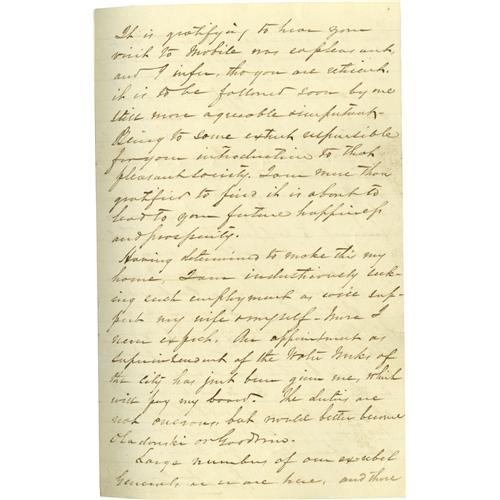 It is gratifying to hear your
visit to Mobile was so pleasant,
and I infer, tho you are reticent,
it is to be followed soon by one
still more agreeable & important.
Being to some extent responsible
for your introduction to that
pleasant society. I am more than
gratified to find it is about to
lead to your future happiness
and prosperity.
Having determined to make this my
home, I am industriously seek-
ing such employment as will sup-
port my wife & myself. More I
never expect. An appointment as
Superintendent of the Water Works of
the city has just been given me, which
will pay my board. The duties are
not onerous, but would better become
or
Large numbers of our exrebel
Generals, are here, and those